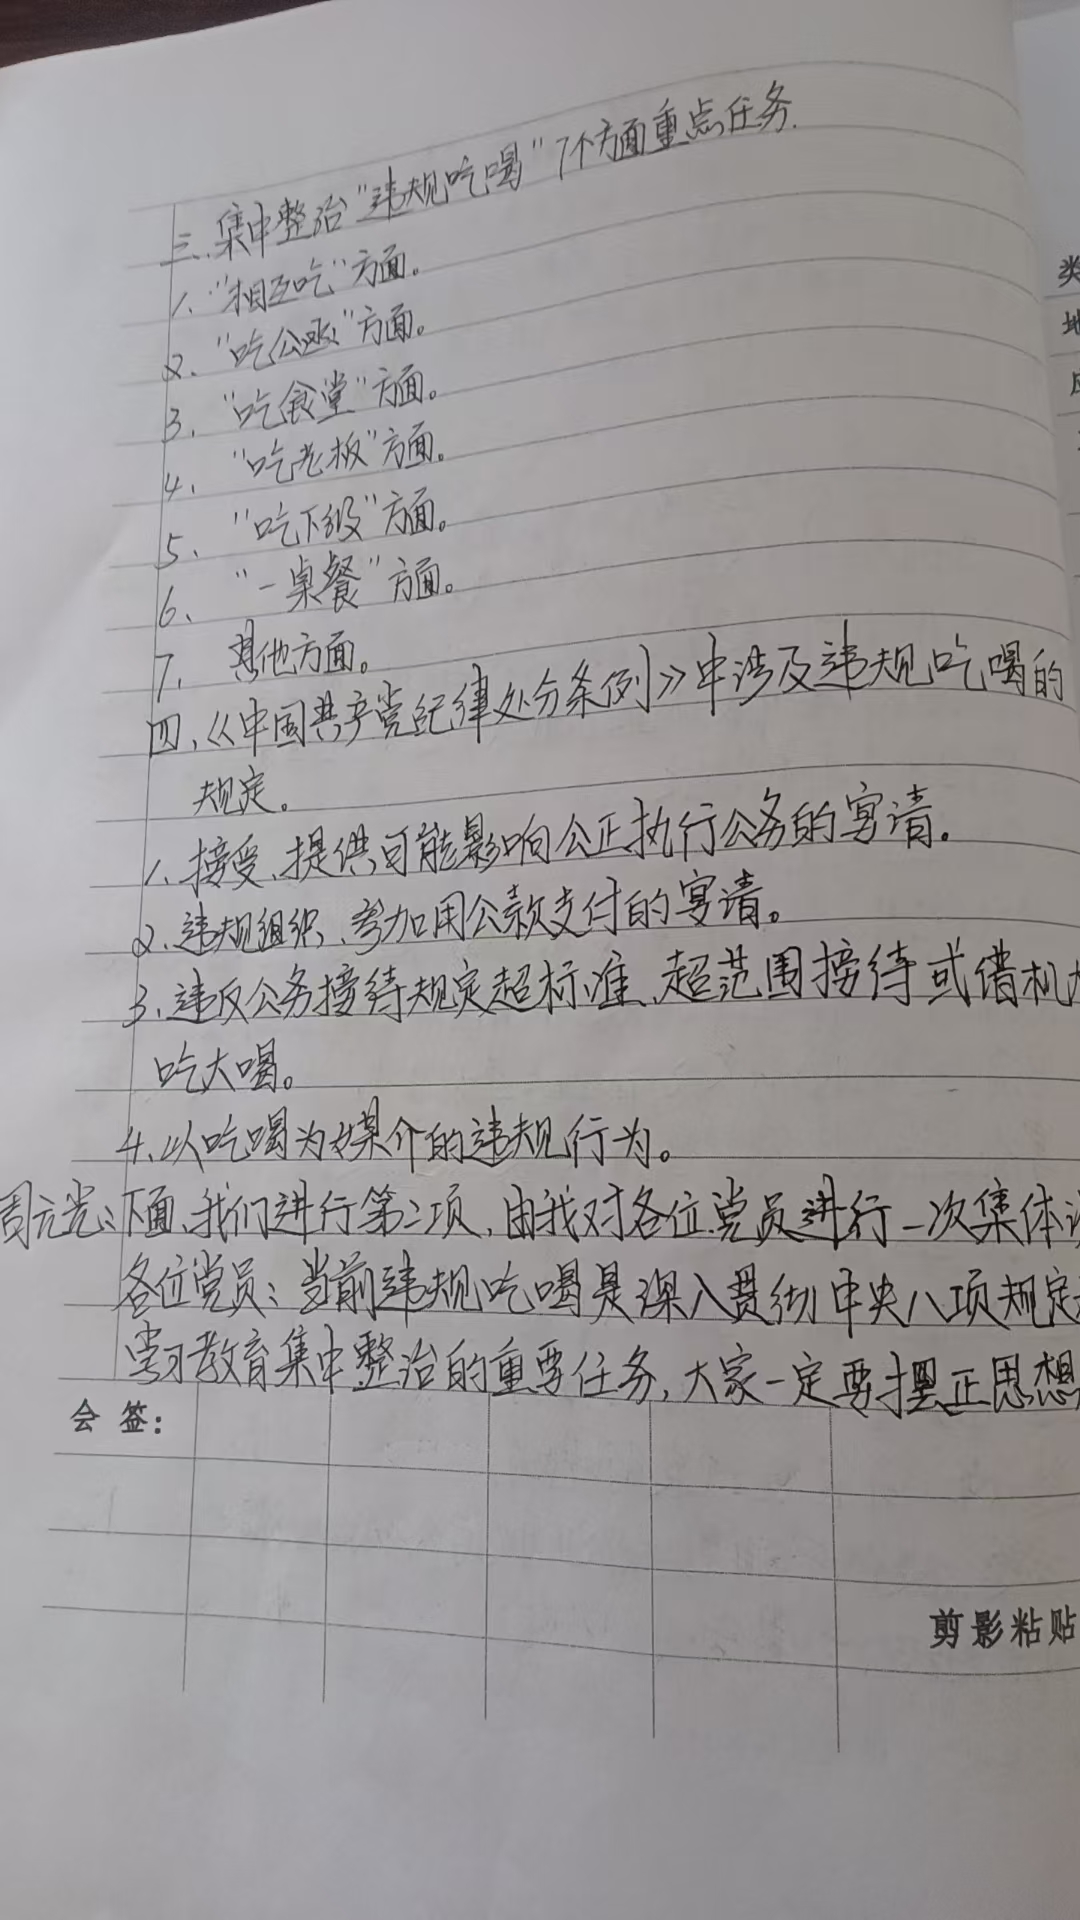 三、集中整治“违规吃喝”7个方面重点任务.
1、“相互吃”方面。
2、“吃公函”方面。
3、“吃食堂”方面。
4、“吃老板”方面。
5、“吃下级”方面。
6、“一桌餐”方面。
7、其他方面。
四、《中国共产党纪律处分条例》中涉及违规吃喝的
规定。
1、接受、提供可能影响公正执行公务的宴请。
2、违规组织、参加用公款支付的宴请。
3、违反公务接待规定超标准、超范围接待或借机大
吃大喝。
4、以吃喝为媒介的违规行为。
周元光:下面、我们进行第二项,由我对各位党员进行一次集体
各位党员:当前违规吃喝是深入贯彻中央八项规定
学习教育集中整治的重要任务,大家一定要摆正思想
会签:
剪影粘贴
类
地